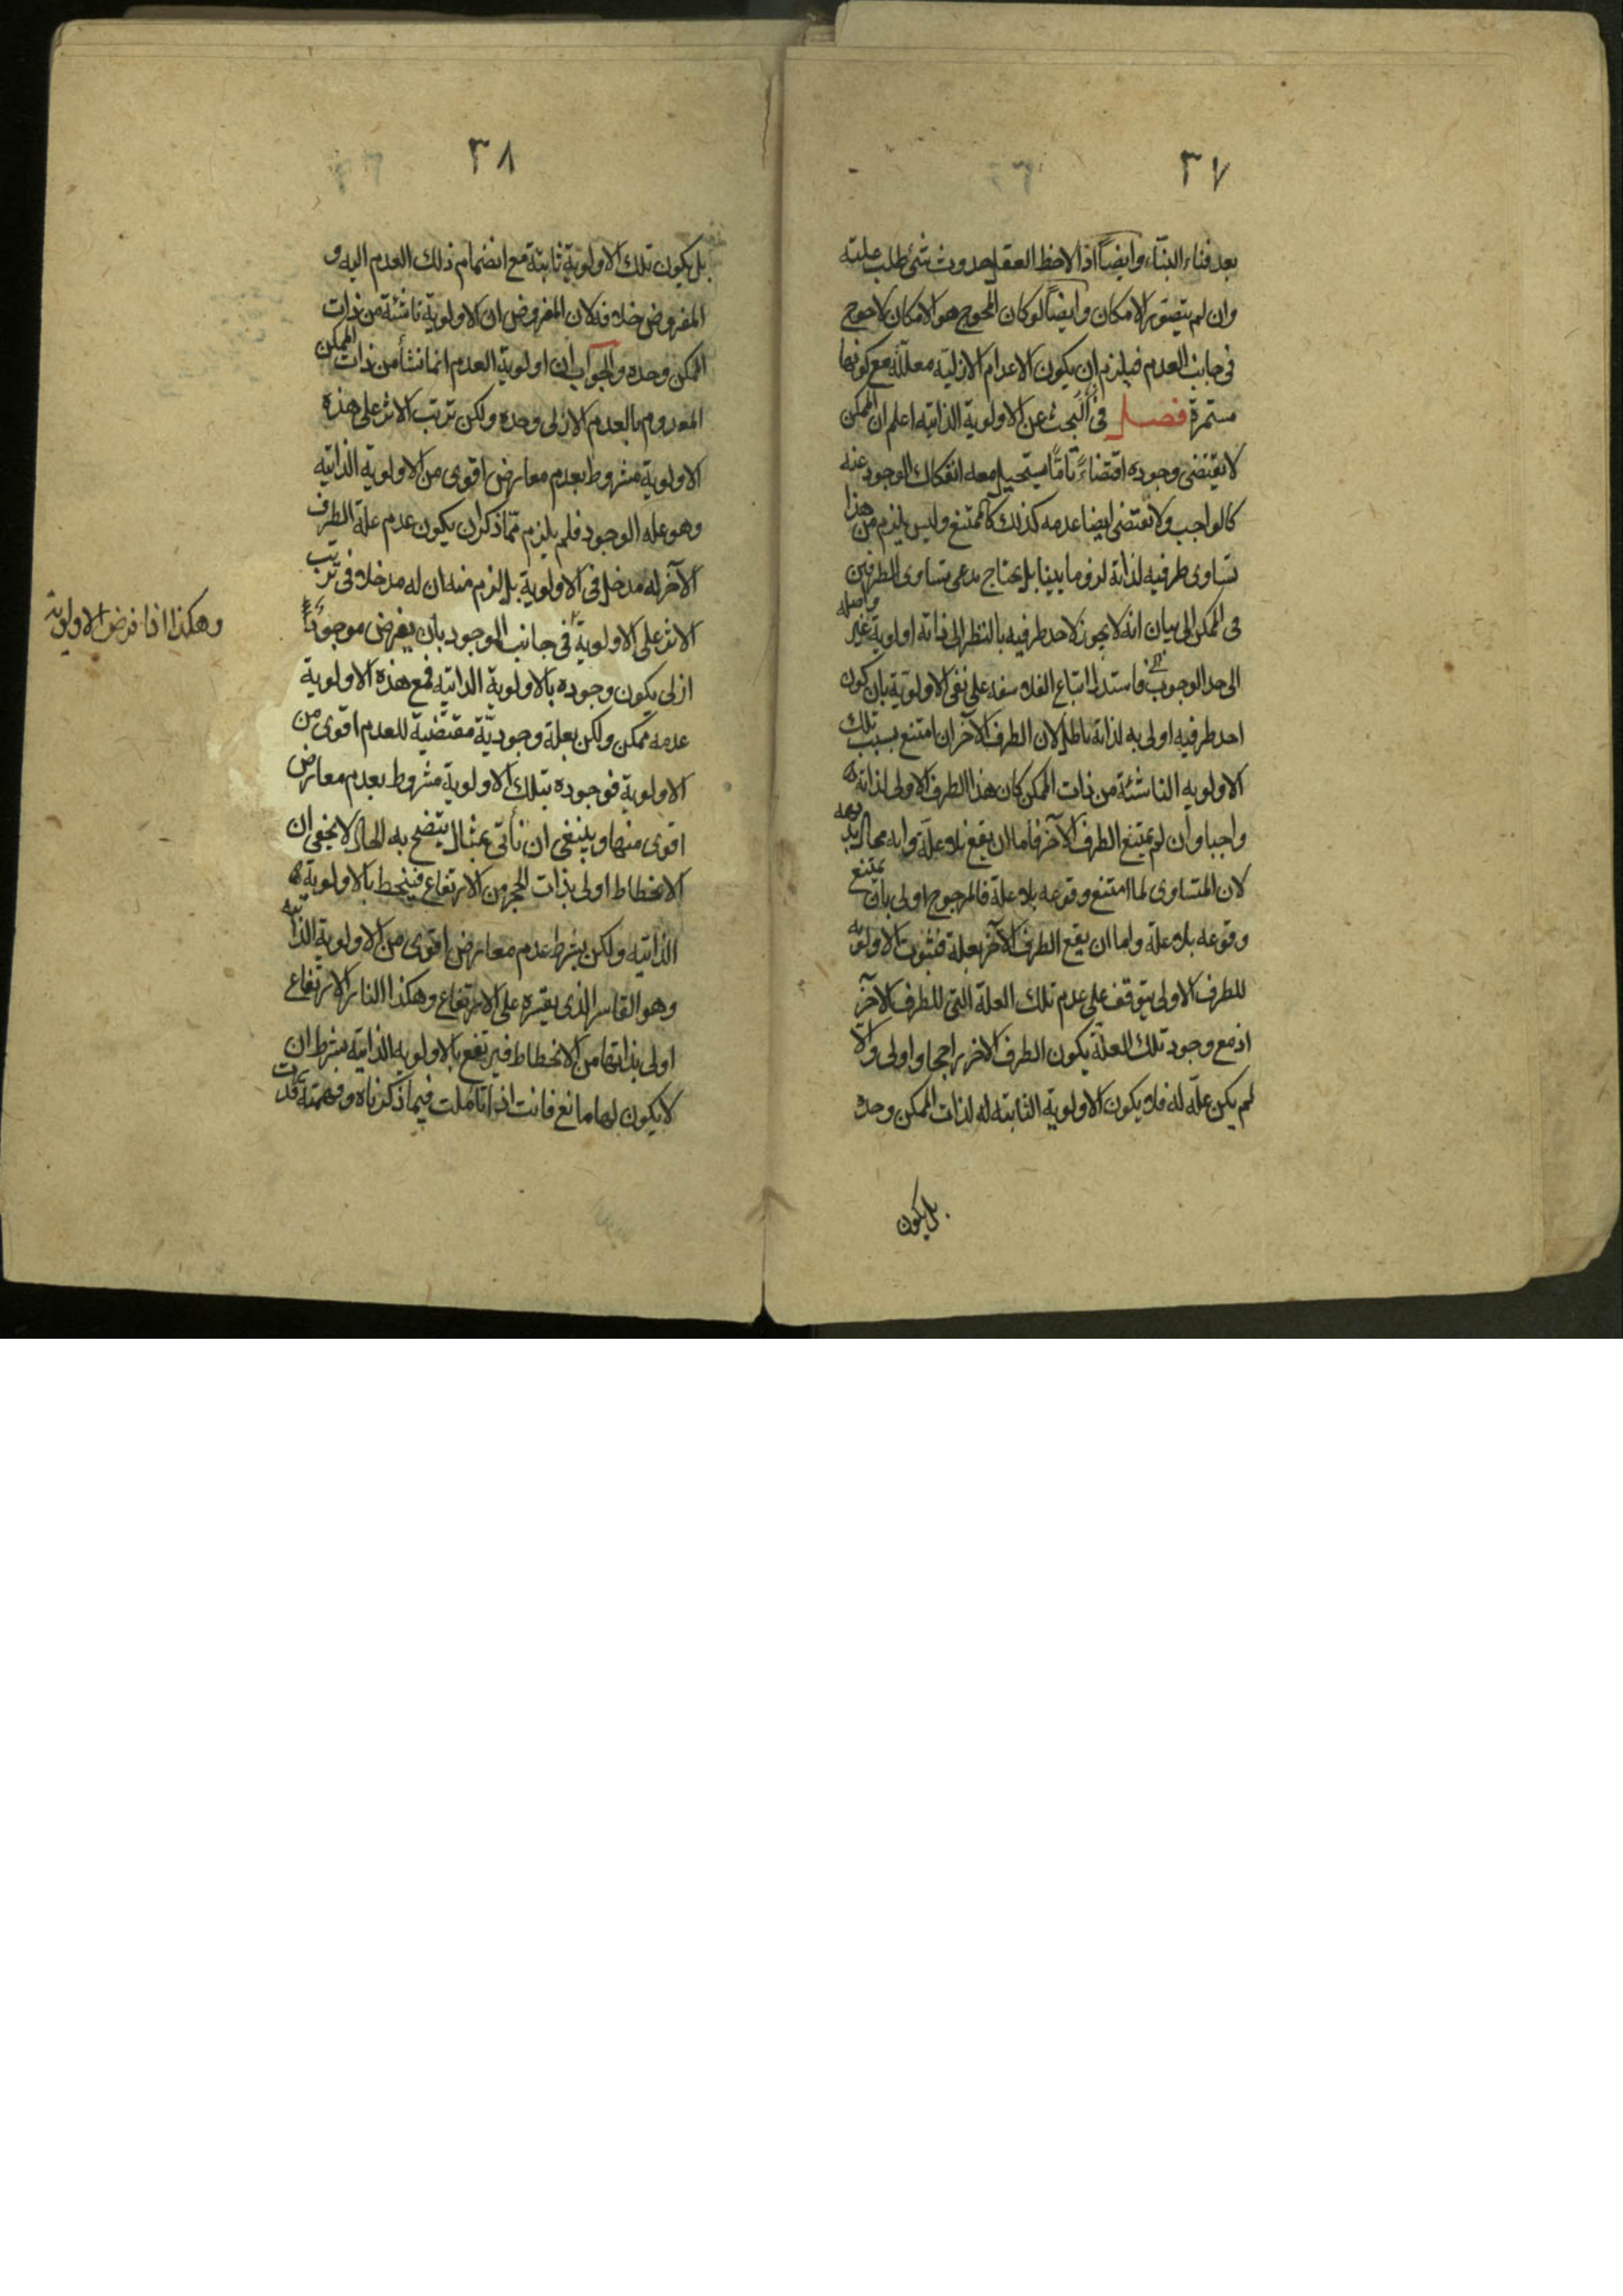 ٣٧
بعد فناء البنّاء وايضاً اذا لاحظ العقل حدوث شئ طلب علته
وان لم يتصوّر الامكان وايضاً لو كان المحوج هو الامكان لاحوج
فى جانب العدم فيلزم ان يكون الاعدام الازليّة معللّة مع كونها
مستمرة فصل فى البحث عن الاولوية الذاتيه اعلم ان الممكن
لا يقتضى وجوده اقتضاءً تامًّا يستحيل معه انفكاك الوجود عنه
كالواجب ولا يقتضى ايضا عدمه كذلك كالممتنع وليس يلزم من هذا
تساوى طرفيه لذاته لزوما بينا بل يحتاج مدعى تساوى الطرفين
فى الممكن الى بيان انه لا يجوز لاحد طرفيه بالنظر الى ذاته اولوية غير واصله
الى حد الوجوب فاستدل اتباع الفلاسفه على نفى الاولويّة بان كون
احد طرفيه اولى به لذاته باطل لان الطرف الآخر ان امتنع بسبب تلك
الاولويه الناشئة من ذات الممكن كان هذا الطرف الاولى لذاته
واجبا وان لم يمتنع الطرف الآخر فاما ان يقع بلا علّة وانه محال بديهه
لان المتساوى لما امتنع وقوعه بلا علة فالمرجوح اولى بان يمتنع
وقوعه بلا علة واما ان يقع الطرف الآخر بعلة فثبوت الاولويه
للطرف الاولى يتوقف على عدم تلك العلة التى للطرف الآخر
اذ مع وجود تلك العلّة يكون الطرف الاخر راجحا واولى والّا
لم يكن علّه له فلا يكون الاولوية الثابته له لذات الممكن وحده
بل يكون
٣٨
بل يكون تلك الاولوية ثابتة مع انضمام ذلك العدم اليه و
المفروض خلافه لان المفروض ان الاولوية ناشئة من ذات
الممكن وحده والجواب ان اولوية العدم انما نشأ من ذات الممكن
المعدوم بالعدم الازلى وحده ولكن ترتب الاثر على هذه
الاولوية مشروط بعدم معارض اقوى من الاولوية الذاتيه
وهو علة الوجود فلم يلزم ممّا ذكر ان يكون عدم علة الطرف
الآخر له مدخل فى الاولوية بل لزم منه ان له مدخلا فى ترتب
الاثر على الاولوية فى جانب الوجود بان يفرض موجوداً
ازلى يكون وجوده بالاولوية الذاتيه فمع هذه الاولوية
عدمه ممكن ولكن بعلة وجوديّة مقتضية للعدم اقوى من
الاولوية فوجوده بتلك الاولوية مشروط بعدم معارض
اقوى منها وينبغى ان نأتى بمثال يتضح به الحال لا يخفى ان
الانحطاط اولى بذات الحجر من الارتفاع فينحط بالاولوية
الذاتيه ولكن بشرط عدم معارض اقوى من الاولوية الذاتيه
وهو القاسر الذى يقسره على الارتفاع وهكذا النار الارتفاع
اولى بذاتها من الانحطاط فيرتفع بالاولويه الذاتيه بشرط ان
لا يكون لها مانع فانت اذا تأملت فيما ذكرناه وفهمته قدرت
وهكذا اذا فرض الاولوية